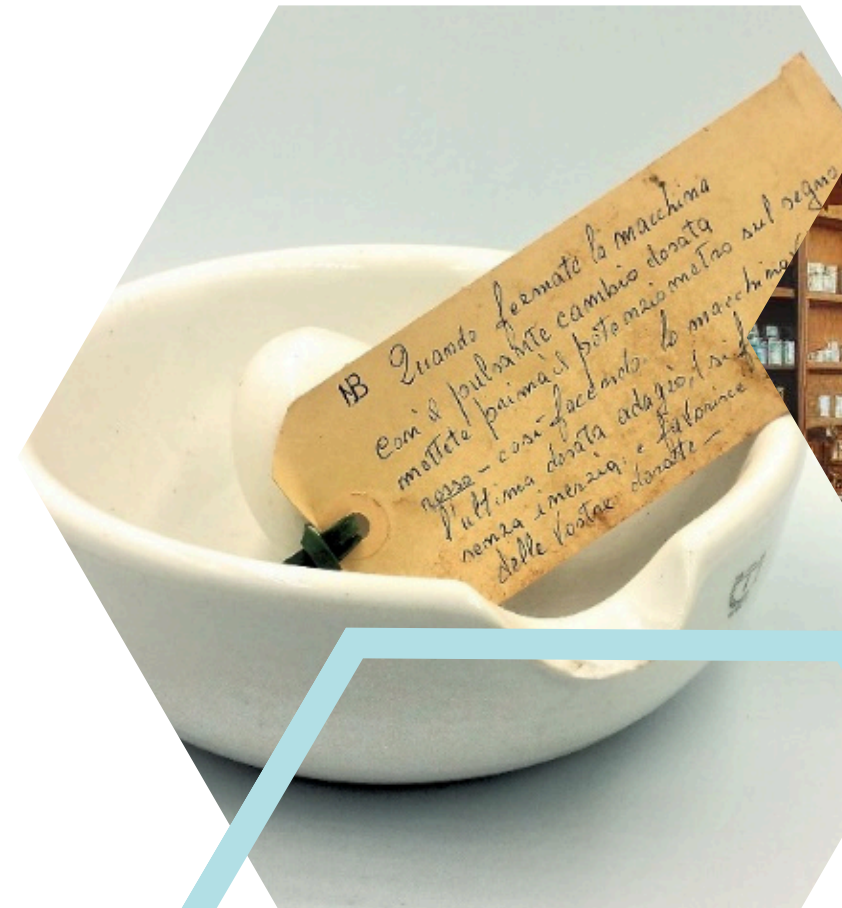 NB Quando fermate la macchina
con il pulsante cambio dosata
mettete prima il potenziometro sul segno
rosso - così facendo la macchina
l'ultima dosata adagio, si
senza inerzia e favorisce
delle Vostre dosatte -